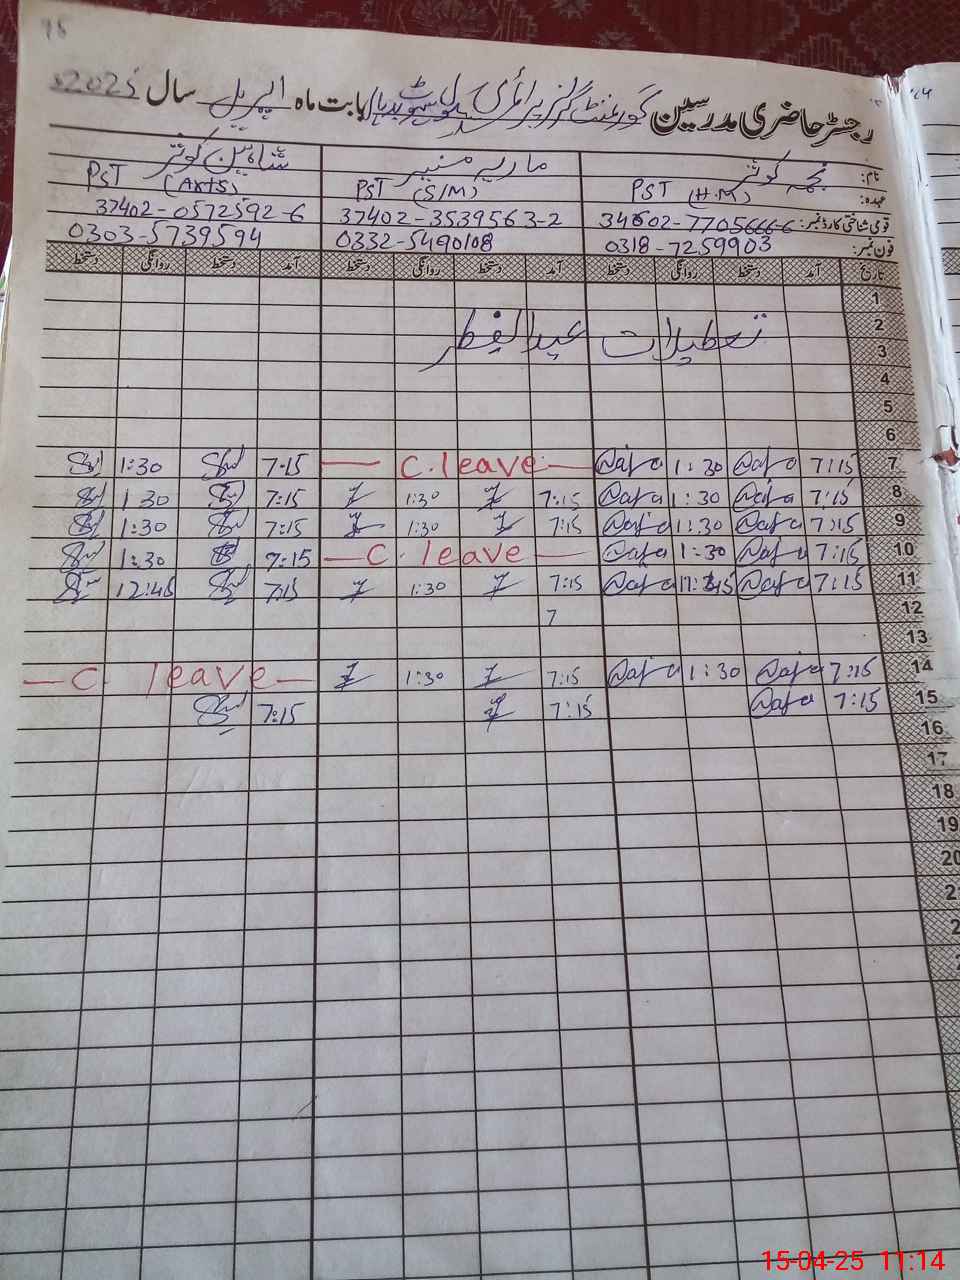 95
رجسٹر حاضری مدرسین گورنمنٹ گرلز پرائمری بابت ماہ اپریل سال 2025
نام: نجمہ کوثر ماریہ منیر شاہین کوثر
عہدہ: PST (H.M) PST (S/M) PST (Arts)
قومی شناختی کارڈ نمبر: 34602-7705666-6 37402-3539563-2 37402-0572592-6
فون نمبر: 0318-7259903 0332-5490108 0303-5739594
تاریخ آمد دستخط روانگی دستخط آمد دستخط روانگی دستخط آمد دستخط روانگی دستخط
1
2
تعطیلات عیدالفطر
3
4
5
6
7 7:15 1:30 — C. leave — 7:15 1:30
8 7:15 1:30 7:15 1:30 7:15 1:30
9 7:15 1:30 7:15 1:30 7:15 1:30
10 7:15 1:30 — C. leave — 7:15 1:30
11 7:15 7:15 1:30 7:15 12:45
12 7
13
14 7:15 1:30 7:15 1:30 — C. leave —
15 7:15 7:15 7:15
16
17
18
19
20
15-04-25 11:14